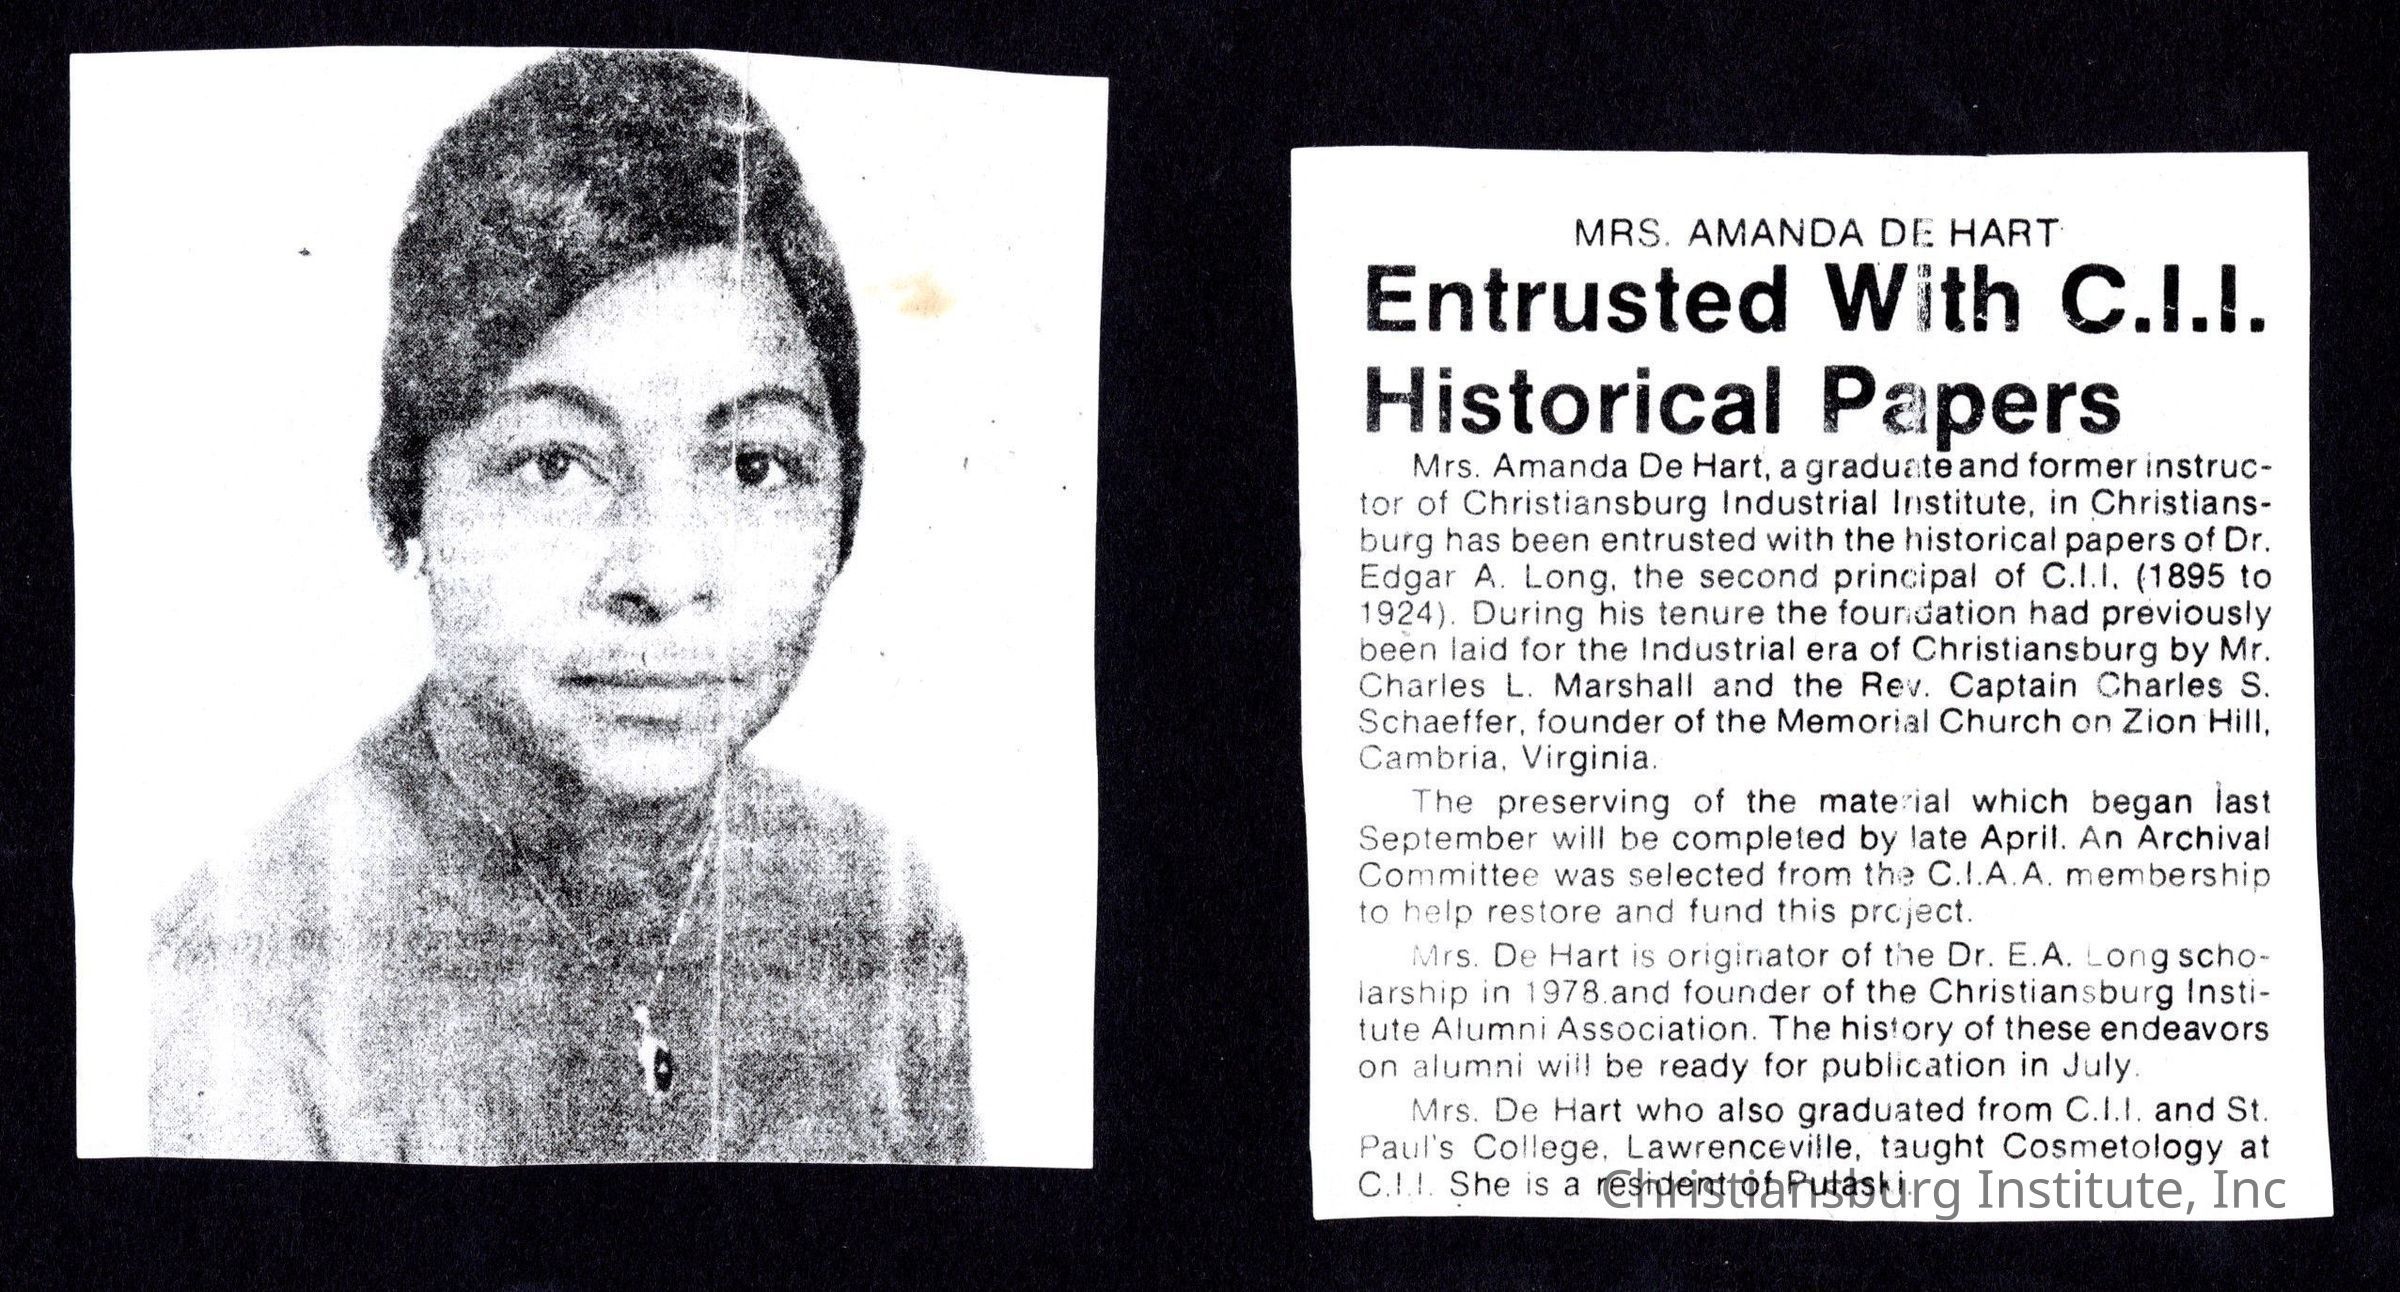 MRS. AMANDA DE HART
Entrusted With C.I.I.
Historical Papers
Mrs. Amanda De Hart, a graduate and former instruc-
tor of Christiansburg Industrial Institute, in Christians-
burg has been entrusted with the historical papers of Dr.
Edgar A. Long, the second principal of C.I.I. (1895 to
1924). During his tenure the foundation had previously
been laid for the Industrial era of Christiansburg by Mr.
Charles L. Marshall and the Rev. Captain Charles S.
Schaeffer, founder of the Memorial Church on Zion Hill,
Cambria, Virginia.
The preserving of the material which began last
September will be completed by late April. An Archival
Committee was selected from the C.I.A.A. membership
to help restore and fund this project.
Mrs. De Hart is originator of the Dr. E.A. Long scho-
larship in 1978.and founder of the Christiansburg Insti-
tute Alumni Association. The history of these endeavors
on alumni will be ready for publication in July.
Mrs. De Hart who also graduated from C.I.I. and St.
Paul's College, Lawrenceville, taught Cosmetology at
C.I.I. She is a resident of Pulaski.
Christiansburg Institute, Inc